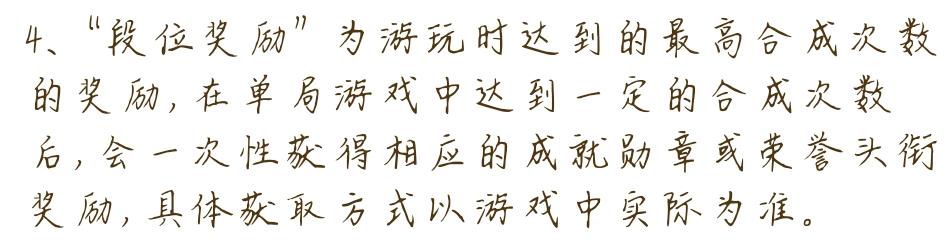 4、“段位奖励”为游玩时达到的最高合成次数
的奖励,在单局游戏中达到一定的合成次数
后,会一次性获得相应的成就勋章或荣誉头衔
奖励,具体获取方式以游戏中实际为准。